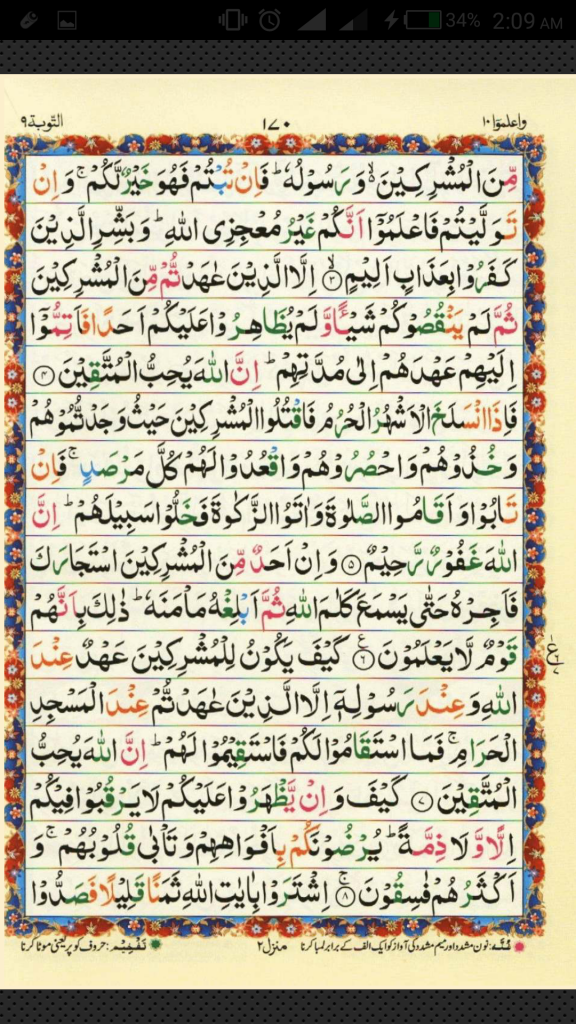 34% 2:09 AM
واعلموٓا ۱۰ ۱۷۰ التّوبة ۹
مِّنَ الْمُشْرِكِيْنَ ۙ۬ وَ رَسُوْلُهٗ ؕ فَاِنْ تُبْتُمْ فَهُوَ خَيْرٌ لَّكُمْ ۚ وَ اِنْ
تَوَلَّيْتُمْ فَاعْلَمُوْۤا اَنَّكُمْ غَيْرُ مُعْجِزِی اللّٰهِ ؕ وَ بَشِّرِ الَّذِيْنَ
كَفَرُوْا بِعَذَابٍ اَلِيْمٍ ۙ﴿۳﴾ اِلَّا الَّذِيْنَ عٰهَدْتُّمْ مِّنَ الْمُشْرِكِيْنَ
ثُمَّ لَمْ يَنْقُصُوْكُمْ شَيْـًٔا وَّ لَمْ يُظَاهِرُوْا عَلَيْكُمْ اَحَدًا فَاَتِمُّوْۤا
اِلَيْهِمْ عَهْدَهُمْ اِلٰى مُدَّتِهِمْ ؕ اِنَّ اللّٰهَ يُحِبُّ الْمُتَّقِيْنَ ﴿۴﴾
فَاِذَا انْسَلَخَ الْاَشْهُرُ الْحُرُمُ فَاقْتُلُوا الْمُشْرِكِيْنَ حَيْثُ وَجَدْتُّمُوْهُمْ
وَ خُذُوْهُمْ وَ احْصُرُوْهُمْ وَ اقْعُدُوْا لَهُمْ كُلَّ مَرْصَدٍ ۚ فَاِنْ
تَابُوْا وَ اَقَامُوا الصَّلٰوةَ وَ اٰتَوُا الزَّكٰوةَ فَخَلُّوْا سَبِيْلَهُمْ ؕ اِنَّ
اللّٰهَ غَفُوْرٌ رَّحِيْمٌ ﴿۵﴾ وَ اِنْ اَحَدٌ مِّنَ الْمُشْرِكِيْنَ اسْتَجَارَكَ
فَاَجِرْهُ حَتّٰى يَسْمَعَ كَلٰمَ اللّٰهِ ثُمَّ اَبْلِغْهُ مَاْمَنَهٗ ؕ ذٰلِكَ بِاَنَّهُمْ
قَوْمٌ لَّا يَعْلَمُوْنَ ﴿۶﴾ كَيْفَ يَكُوْنُ لِلْمُشْرِكِيْنَ عَهْدٌ عِنْدَ
اللّٰهِ وَ عِنْدَ رَسُوْلِهٖۤ اِلَّا الَّذِيْنَ عٰهَدْتُّمْ عِنْدَ الْمَسْجِدِ
الْحَرَامِ ۚ فَمَا اسْتَقَامُوْا لَكُمْ فَاسْتَقِيْمُوْا لَهُمْ ؕ اِنَّ اللّٰهَ يُحِبُّ
الْمُتَّقِيْنَ ﴿۷﴾ كَيْفَ وَ اِنْ يَّظْهَرُوْا عَلَيْكُمْ لَا يَرْقُبُوْا فِيْكُمْ
اِلًّا وَّ لَا ذِمَّةً ؕ يُرْضُوْنَكُمْ بِاَفْوَاهِهِمْ وَ تَاْبٰى قُلُوْبُهُمْ ۚ وَ
اَكْثَرُهُمْ فٰسِقُوْنَ ۚ﴿۸﴾ اِشْتَرَوْا بِاٰيٰتِ اللّٰهِ ثَمَنًا قَلِيْلًا فَصَدُّوْا
غُنّه: نون مشدد اور میم مشدد کی آواز کو ایک الف کے برابر لمبا کرنا منزل ۲ تفخیم: حروف کو پُر یعنی موٹا کرنا